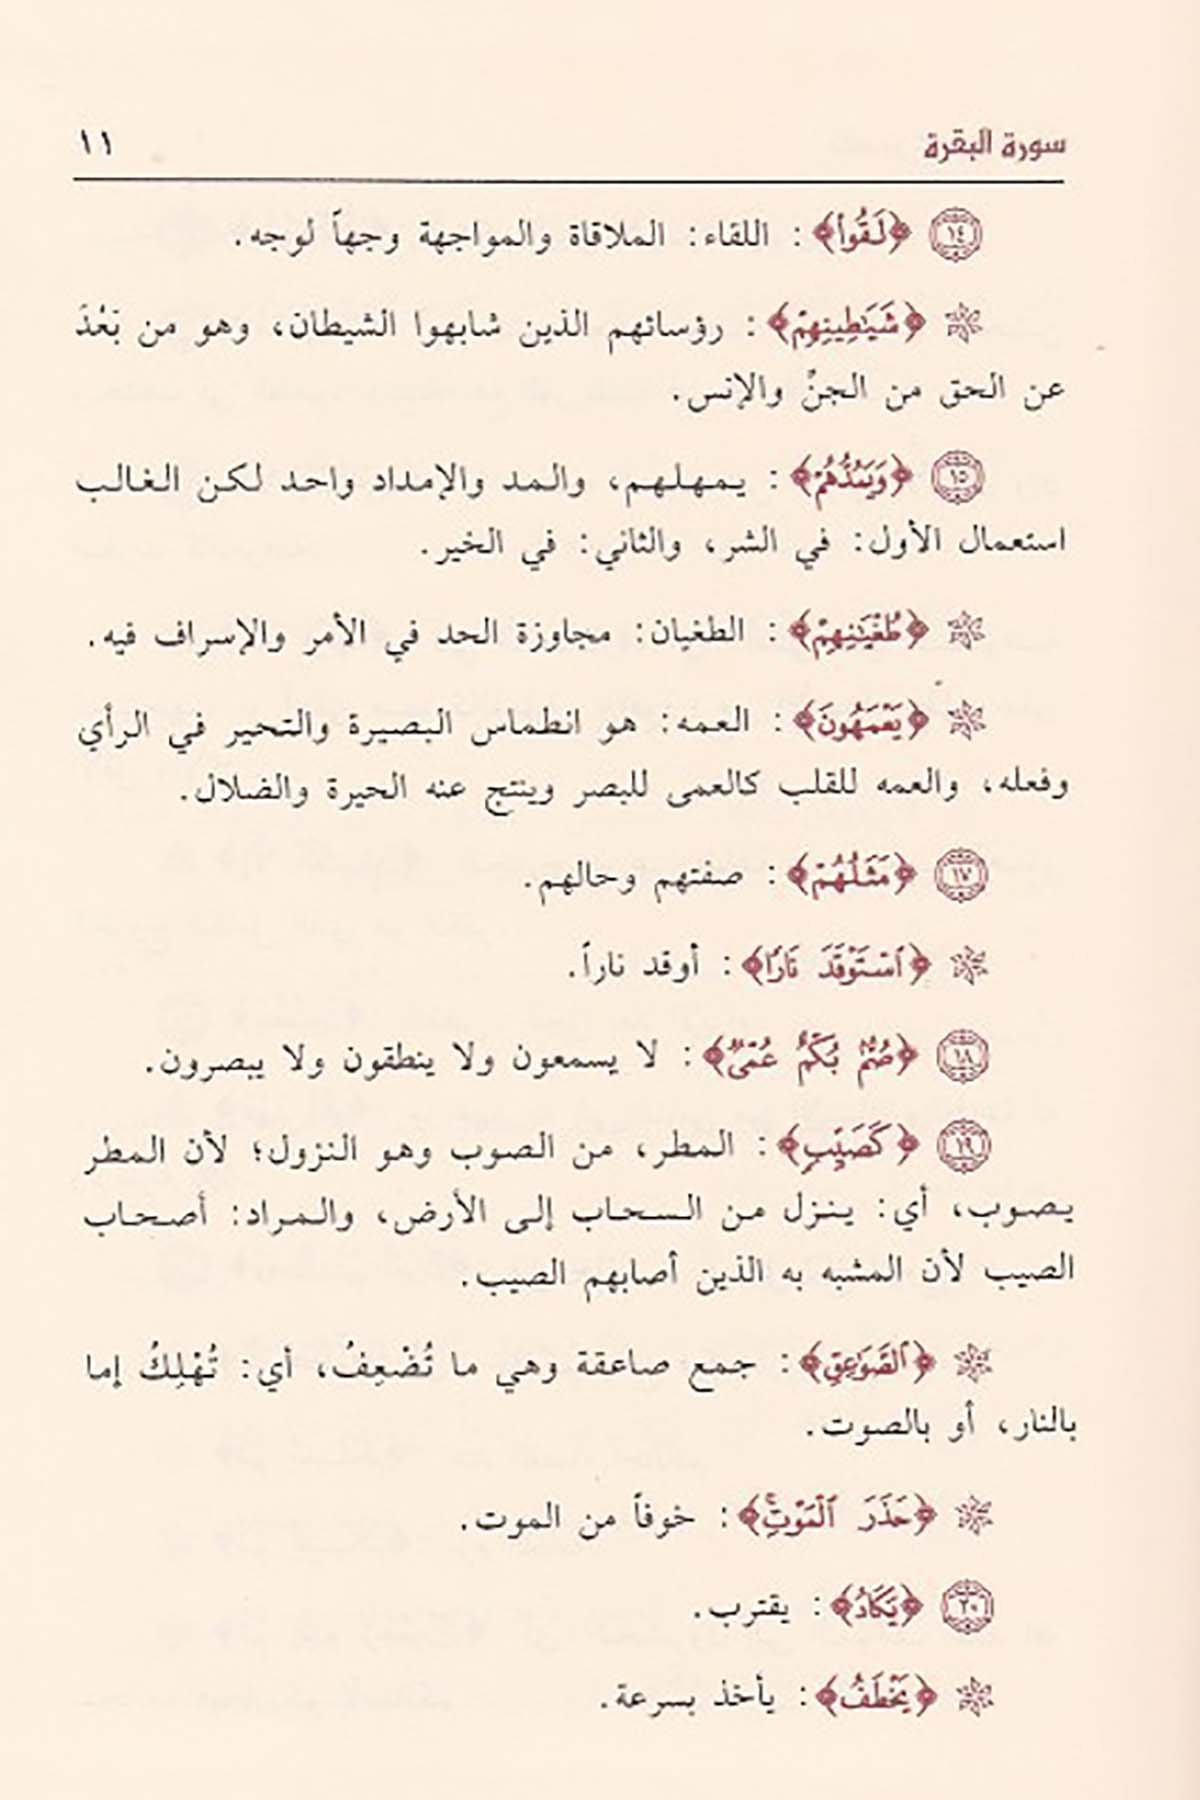 سورة البقرة ١١
١٤ ﴿لَقُوا۟﴾ : اللقاء: الملاقاة والمواجهة وجهاً لوجه.
﴿شَيَـٰطِينِهِمْ﴾ : رؤسائهم الذين شابهوا الشيطان، وهو من بَعْدَ
عن الحق من الجنِّ والإنس.
١٥ ﴿وَيَمُدُّهُمْ﴾ : يمهلهم، والمد والإمداد واحد لكن الغالب
استعمال الأول: في الشر، والثاني: في الخير.
﴿طُغْيَـٰنِهِمْ﴾ : الطغيان: مجاوزة الحد في الأمر والإسراف فيه.
﴿يَعْمَهُونَ﴾ : العمه: هو انطماس البصيرة والتحير في الرأي
وفعله، والعمه للقلب كالعمى للبصر وينتج عنه الحيرة والضلال.
١٧ ﴿مَثَلُهُمْ﴾ : صفتهم وحالهم.
﴿ٱسْتَوْقَدَ نَارًا﴾ : أوقد ناراً.
١٨ ﴿صُمٌّۢ بُكْمٌ عُمْىٌ﴾ : لا يسمعون ولا ينطقون ولا يبصرون.
١٩ ﴿كَصَيِّبٍ﴾ : المطر، من الصوب وهو النزول؛ لأن المطر
يصوب، أي: ينزل من السحاب إلى الأرض، والمراد: أصحاب
الصيب لأن المشبه به الذين أصابهم الصيب.
﴿ٱلصَّوَٰعِقِ﴾ : جمع صاعقة وهي ما تُضْعِفُ، أي: تُهْلِكُ إما
بالنار، أو بالصوت.
﴿حَذَرَ ٱلْمَوْتِ ۚ﴾ : خوفاً من الموت.
٢٠ ﴿يَكَادُ﴾ : يقترب.
﴿يَخْطَفُ﴾ : يأخذ بسرعة.